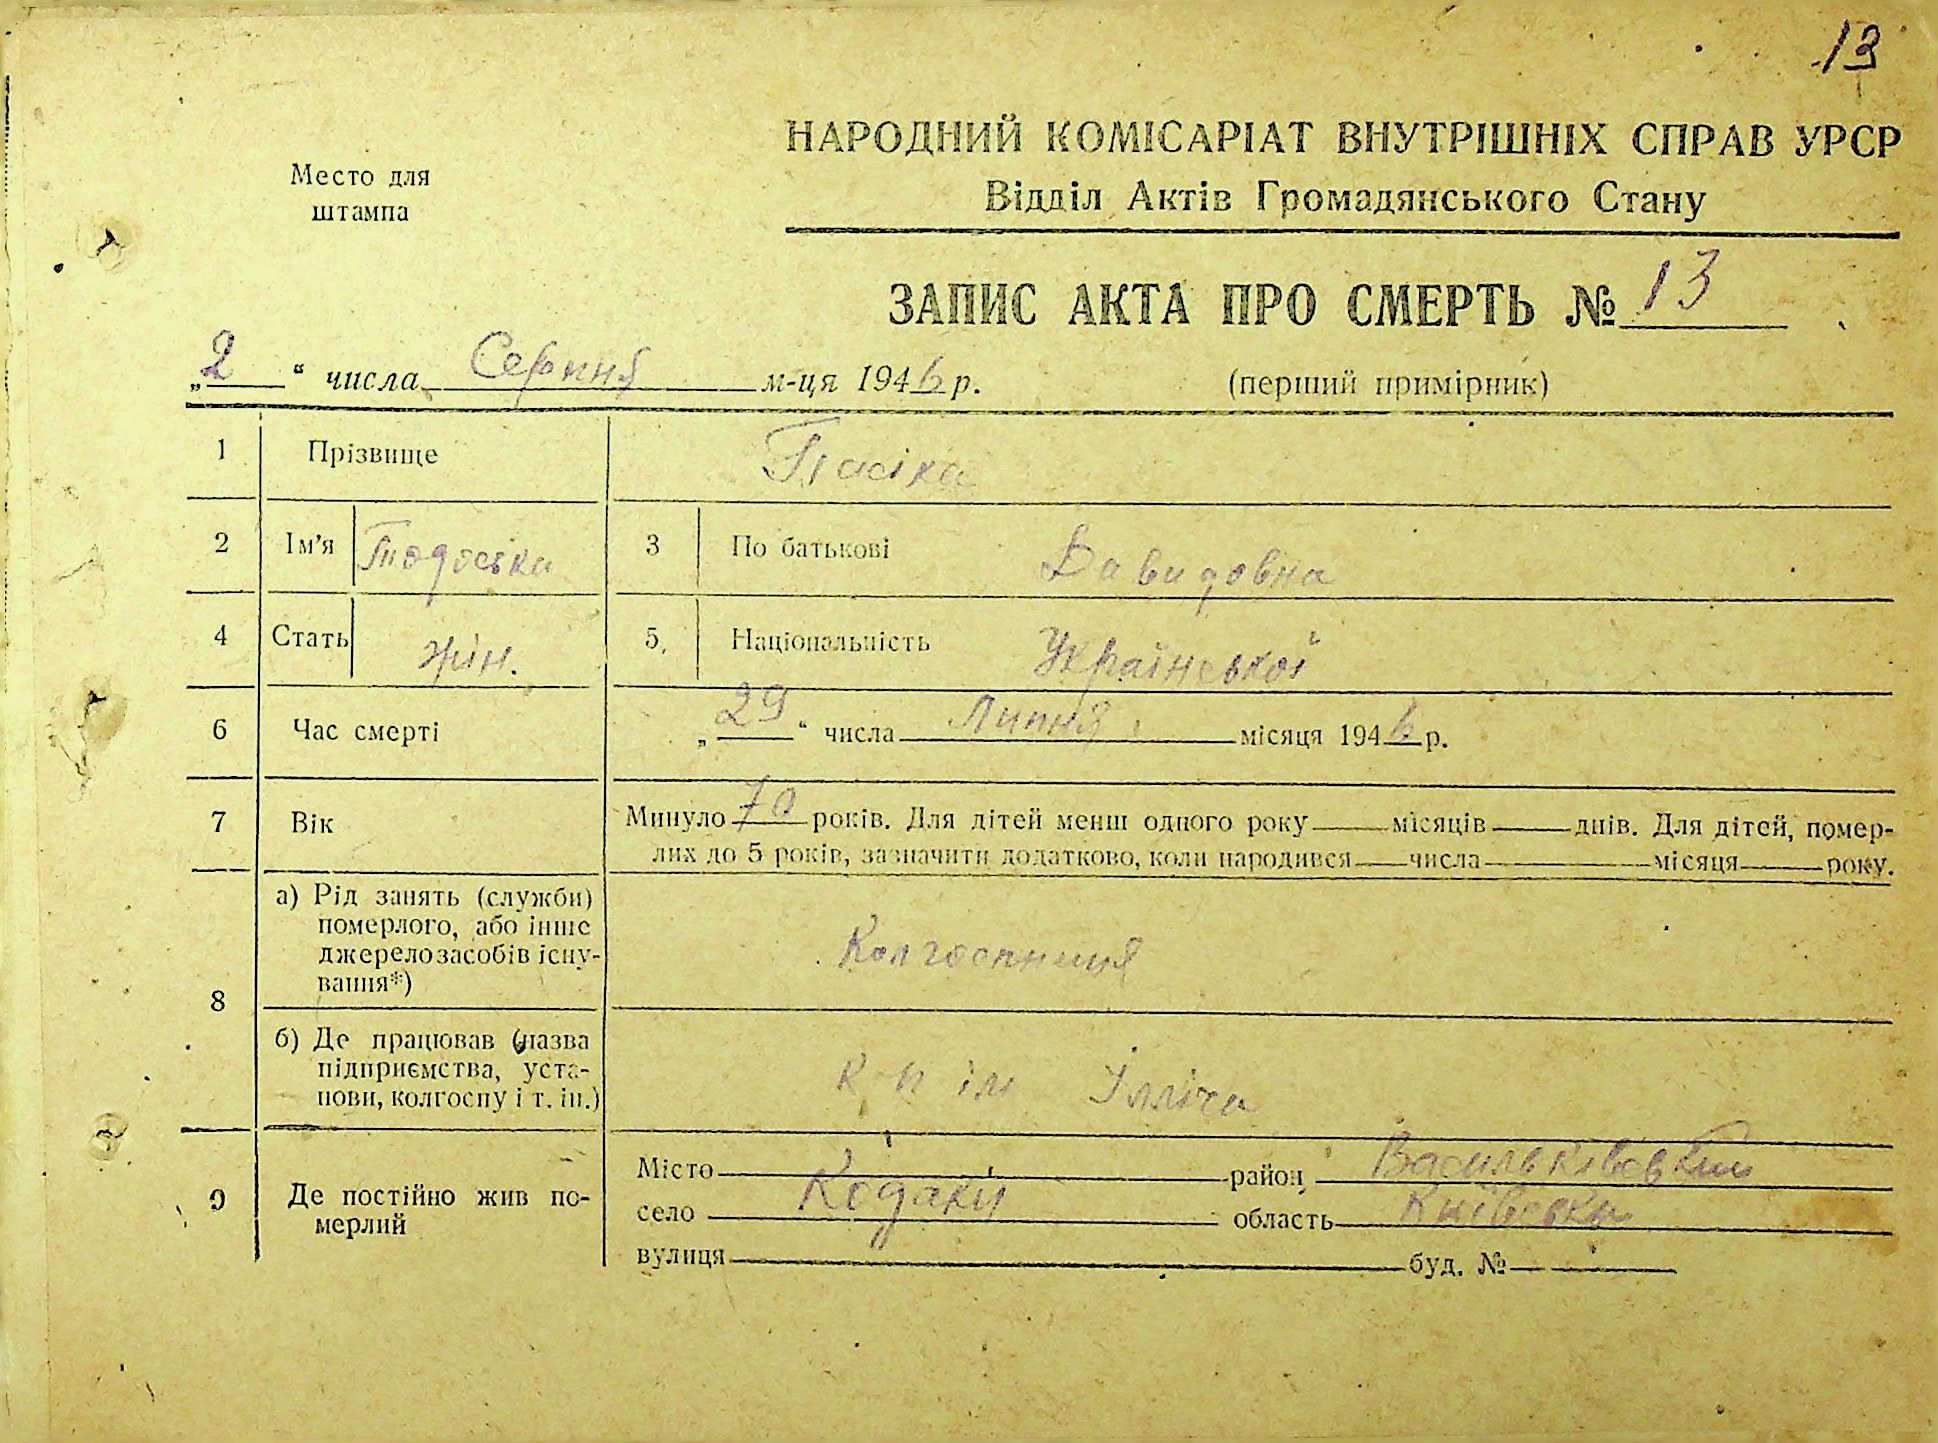 13
НАРОДНИЙ КОМІСАРІАТ ВНУТРІШНІХ СПРАВ УРСР
Место для
штампа
Відділ Актів Громадянського Стану
ЗАПИС АКТА ПРО СМЕРТЬ № 13
„2“ числа Серпня м-ця 1946 р.
(перший примірник)
1 Прізвище Пасіка
2 Ім'я Тодоська 3 По батькові Давидовна
4 Стать жін. 5. Національність Української
6 Час смерті „29“ числа Липня місяця 1946 р.
7 Вік Минуло 70 років. Для дітей менш одного року місяців днів. Для дітей, помер-
лих до 5 років, зазначити додатково, коли народився числа місяця року.
8 а) Рід занять (служби)
померлого, або інше
джерело засобів існу-
вання*)
Колгоспниця
б) Де працював (назва
підприємства, уста-
нови, колгоспу і т. ін.)
к-п ім Ілліча
9 Де постійно жив по-
мерлий
Місто район Васильківський
село Кодаки область Київська
вулиця буд. №